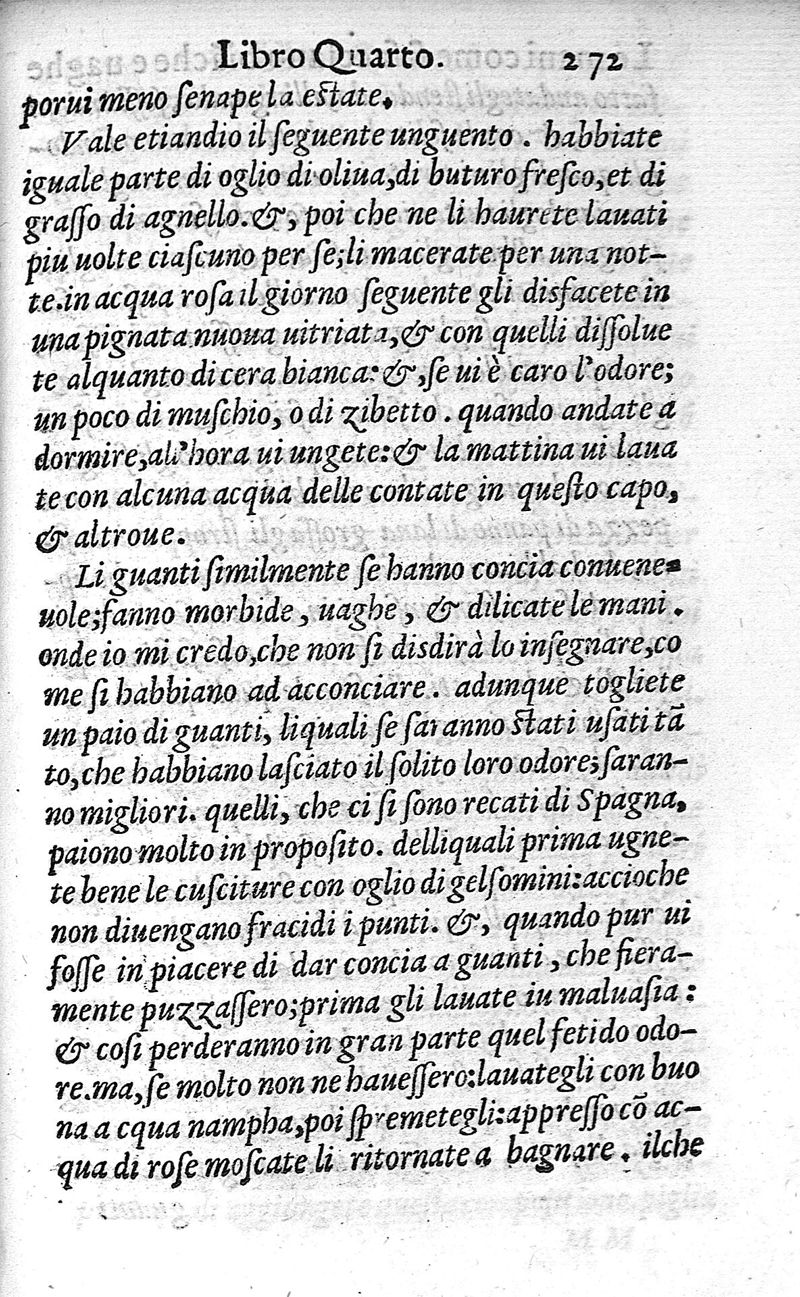 Libro Quarto. 272
porui meno ſenape la eſtate.
Vale etiandio il ſeguente unguento . habbiate
iguale parte di oglio di oliua,di buturo freſco,et di
graſſo di agnello.&, poi che ne li haurete lauati
piu uolte ciaſcuno per ſe;li macerate per una not-
te.in acqua roſa il giorno ſeguente gli disfacete in
una pignata nuoua uitriata,& con quelli diſſolue
te alquanto di cera bianca:&,ſe ui è caro l'odore;
un poco di muſchio, o di zibetto . quando andate a
dormire,all'hora ui ungete:& la mattina ui laua
te con alcuna acqua delle contate in queſto capo,
& altroue.
Li guanti ſimilmente ſe hanno concia conuene-
uole;fanno morbide , uaghe , & dilicate le mani .
onde io mi credo,che non ſi disdirà lo inſegnare,co
me ſi habbiano ad acconciare . adunque togliete
un paio di guanti, liquali ſe ſaranno ſtati uſati tā
to,che habbiano laſciato il ſolito loro odore;ſaran-
no migliori. quelli, che ci ſi ſono recati di Spagna,
paiono molto in propoſito. delliquali prima ugne-
te bene le cuſciture con oglio di gelſomini:accioche
non diuengano fracidi i punti. &, quando pur ui
foſſe in piacere di dar concia a guanti , che fiera-
mente puzzaſſero;prima gli lauate iu maluaſia :
& coſi perderanno in gran parte quel fetido odo-
re.ma,ſe molto non ne haueſſero:lauategli con buo
na a cqua nampha,poi ſpremetegli:appreſſo cō ac-
qua di roſe moſcate li ritornate a bagnare . ilche